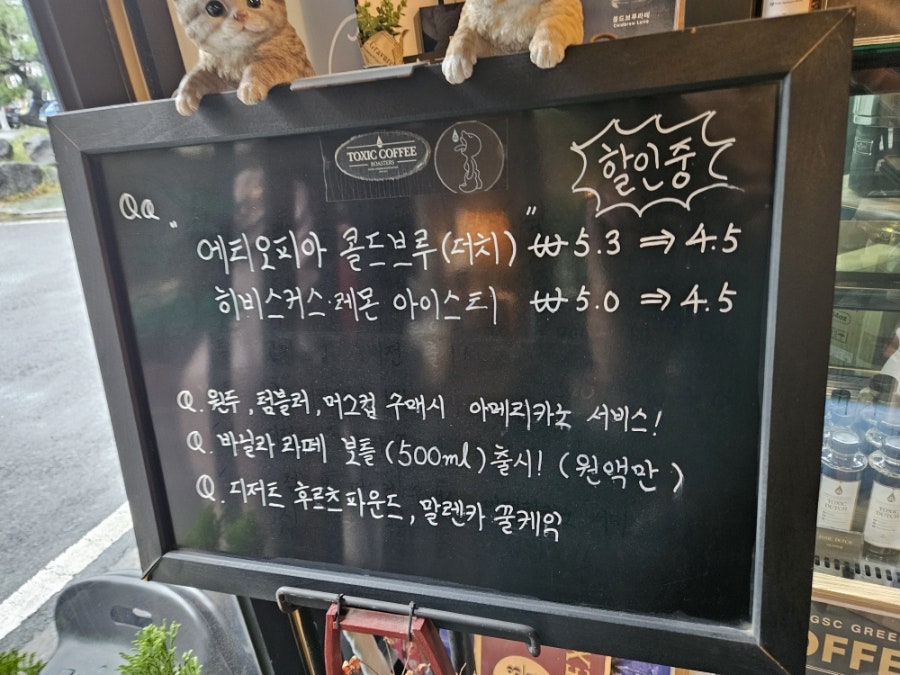 콜드브루라떼
Coldbrew Latte
TOXIC COFFEE
ROASTERS
할인중
QQ " 에티오피아 콜드브루(더치) " ₩5.3 ⇒ 4.5
히비스커스·레몬 아이스티 ₩5.0 ⇒ 4.5
Q. 원두, 텀블러, 머그컵 구매시 아메리카노 서비스!
Q. 바닐라 라떼 보틀 (500ml) 출시! (원액만)
Q. 디저트 후르츠파운드, 말렌카 꿀케잌
TOXIC
DUTCH
GSC GREE
OFFE